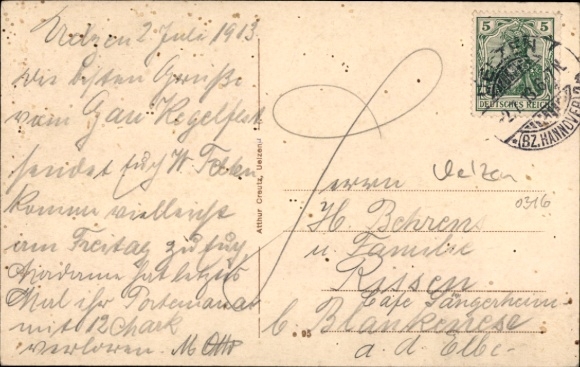 Uelzen 2 Juli 1913
die besten Grüße
vom Gau Kegelfest
sendet Euch W.
komme vielleicht
am Freitag zu Euch
hat letztes
Mal ihr Portemonai
mit 12 Mark
verloren. M Otto
Arthur Creutz, Uelzen
5 5
DEUTSCHES REICH
UELZEN
*(BZ.HANNOVER)
Uelzen
0316
Herrn
H Behrens
u Familie
Rissen
Cafe Sängerheim
b. Blankenese
a. d. Elbe
95